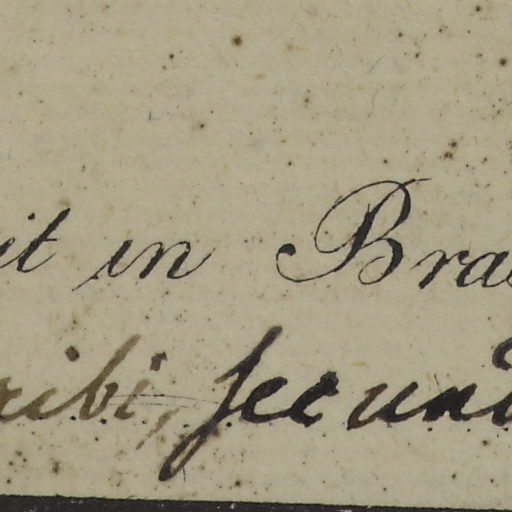 it in Bra
ribi, secund